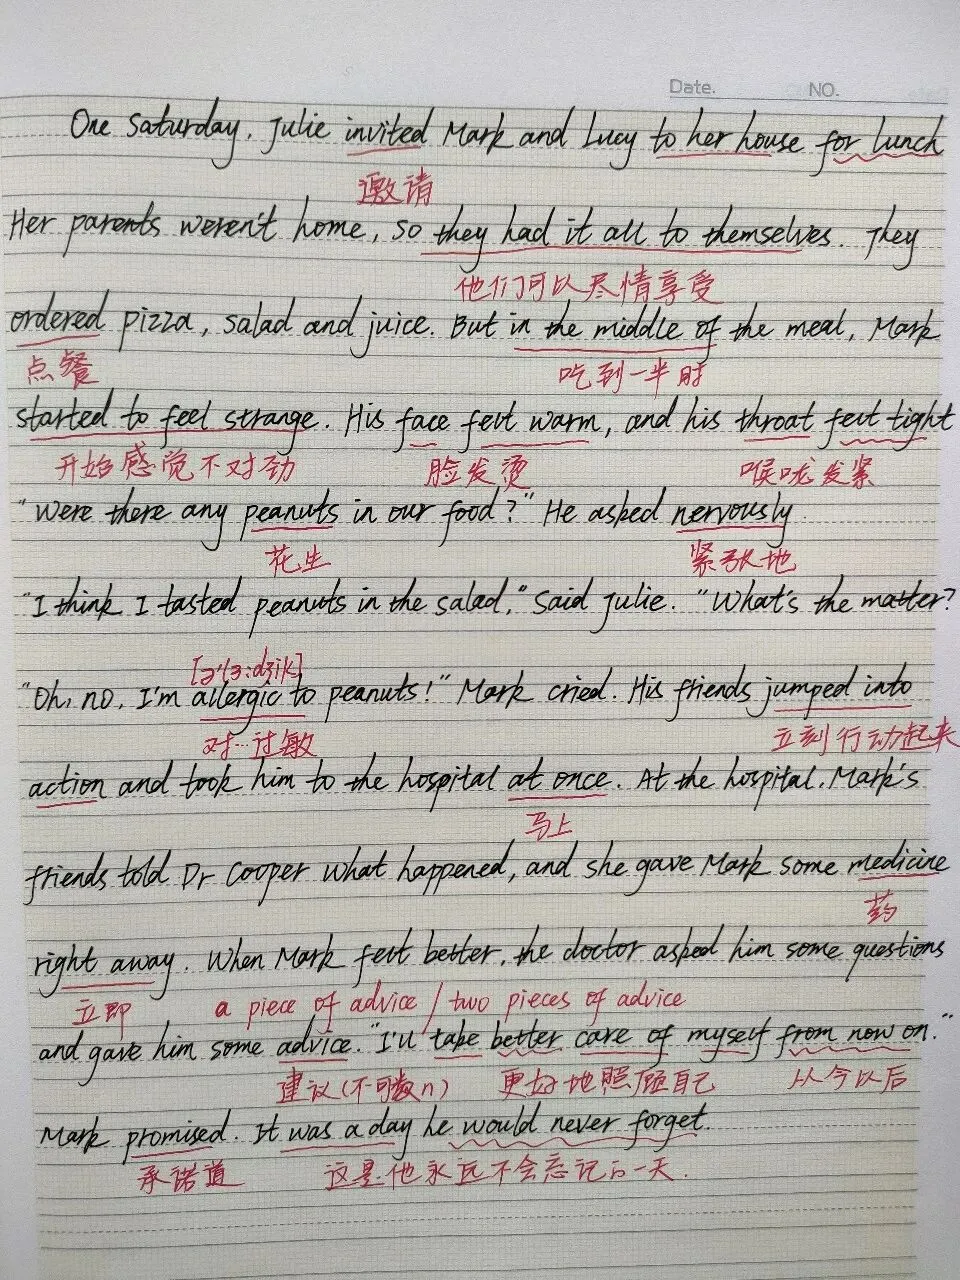 Date. NO.
One Saturday, Julie invited Mark and Lucy to her house for lunch
邀请
Her parents weren't home, so they had it all to themselves. They
他们可以尽情享受
ordered pizza, salad and juice. But in the middle of the meal, Mark
点餐 吃到一半时
started to feel strange. His face felt warm, and his throat felt tight
开始感觉不对劲 脸发烫 喉咙发紧
"Were there any peanuts in our food?" He asked nervously.
花生 紧张地
"I think I tasted peanuts in the salad," Said Julie. "What's the matter?
[ə'lɜ:dʒik]
"Oh, no, I'm allergic to peanuts!" Mark cried. His friends jumped into
对…过敏 立刻行动起来
action and took him to the hospital at once. At the hospital, Mark's
马上
friends told Dr Cooper what happened, and she gave Mark some medicine
药
right away. When Mark felt better, the doctor asked him some questions
立即 a piece of advice / two pieces of advice
and gave him some advice. "I'll take better care of myself from now on."
建议(不可数n) 更好地照顾自己 从今以后
Mark promised. It was a day he would never forget.
承诺道 这是他永远不会忘记的一天.